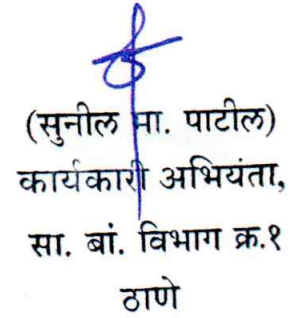 (सुनील मा. पाटील)
कार्यकारी अभियंता,
सा. बां. विभाग क्र.१
ठाणे